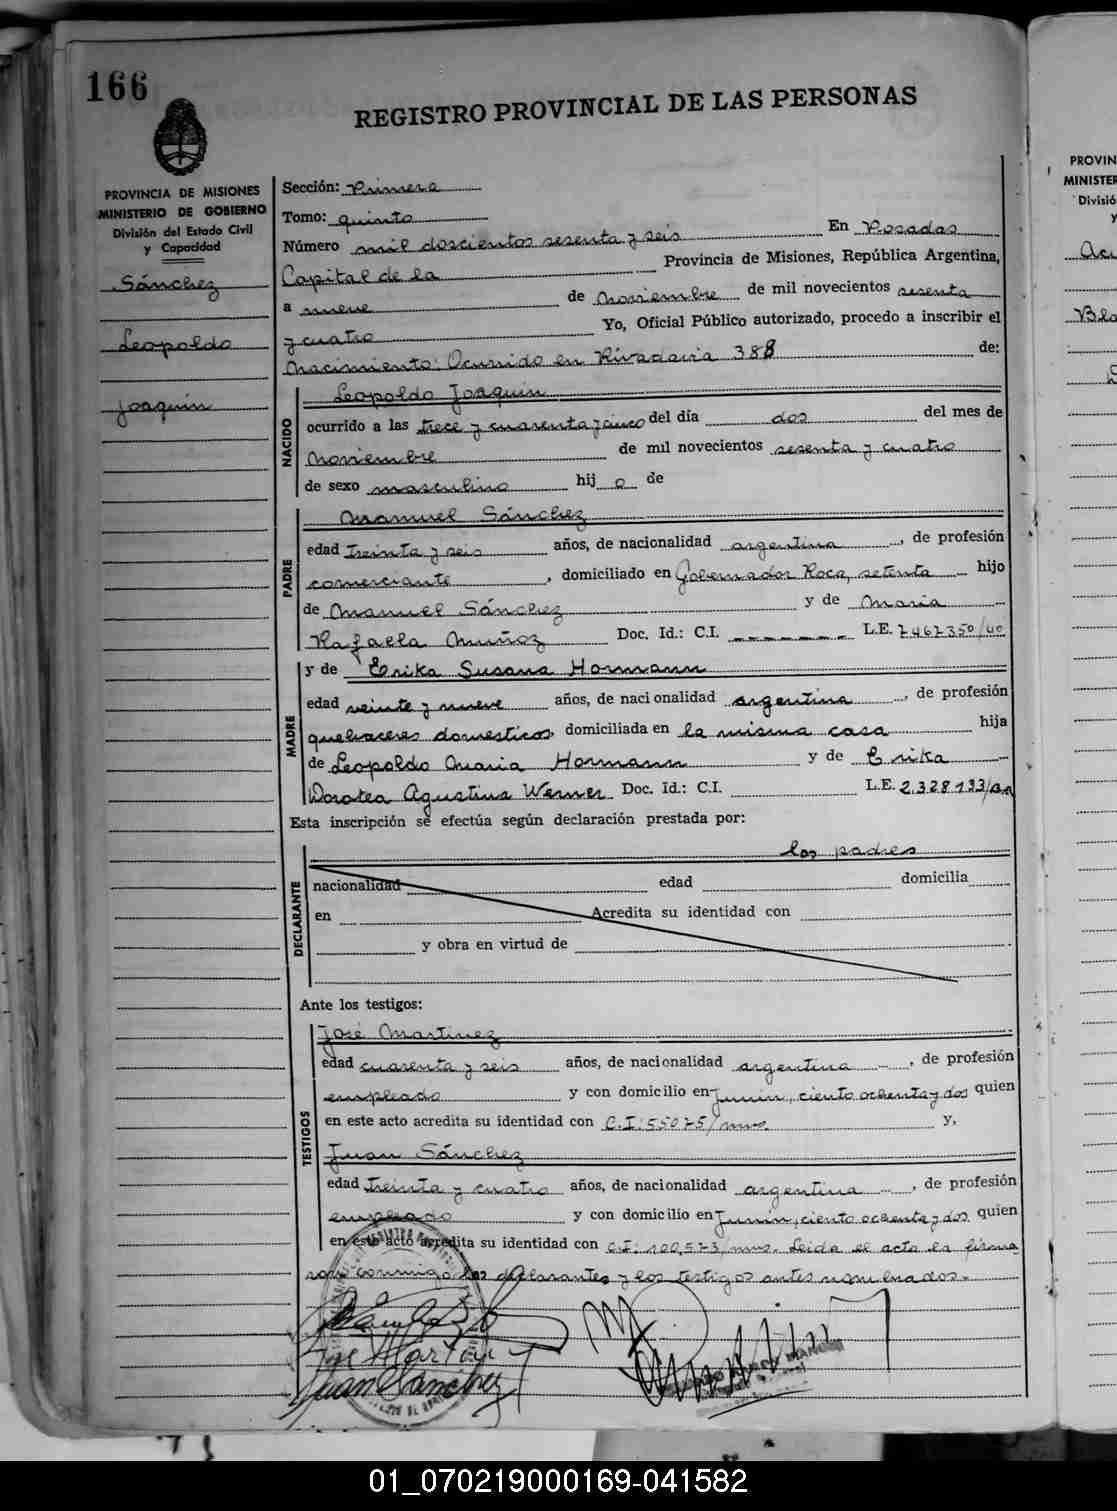 166
REGISTRO PROVINCIAL DE LAS PERSONAS
PROVINCIA DE MISIONES
MINISTERIO DE GOBIERNO
División del Estado Civil
y Capacidad
Sánchez
Leopoldo
Joaquín
Sección: Primera
Tomo: quinto
Número mil doscientos sesenta y seis En Posadas
Capital de la Provincia de Misiones, República Argentina,
a nueve de noviembre de mil novecientos sesenta
y cuatro Yo, Oficial Público autorizado, procedo a inscribir el
Nacimiento: Ocurrido en Rivadavia 388 de:
NACIDO
Leopoldo Joaquín
ocurrido a las trece y cuarenta y cinco del día dos del mes de
Noviembre de mil novecientos sesenta y cuatro
de sexo masculino hij o de
PADRE
Manuel Sánchez
edad treinta y seis años, de nacionalidad argentina, de profesión
comerciante, domiciliado en Gobernador Roca, setenta hijo
de Manuel Sánchez y de María
Rafaela Muñoz Doc. Id.: C.I. L.E. 7467350/40
MADRE
y de Erika Susana Hormann
edad veinte y nueve años, de nacionalidad argentina, de profesión
quehaceres domesticos, domiciliada en la misma casa hija
de Leopoldo Maria Hormann y de Erika
Dorotea Agustina Werner Doc. Id.: C.I. L.E. 2.328.133/
Esta inscripción se efectúa según declaración prestada por:
los padres
DECLARANTE
nacionalidad edad domicilia
en Acredita su identidad con
y obra en virtud de
Ante los testigos:
TESTIGOS
José Martinez
edad cuarenta y seis años, de nacionalidad argentina, de profesión
empleado y con domicilio en Junín, ciento ochenta y dos quien
en este acto acredita su identidad con C.I: 55075/mns. y,
Juan Sánchez
edad treinta y cuatro años, de nacionalidad argentina, de profesión
empleado y con domicilio en Junín, ciento ochenta y dos quien
en este acto acredita su identidad con C.I: 100,573/mns. Leída el acta la firma
ron conmigo los declarantes y los testigos antes nombrados.
José Martinez
Juan Sanchez
PROVIN
MINISTER
Divisió
y
01_070219000169-041582